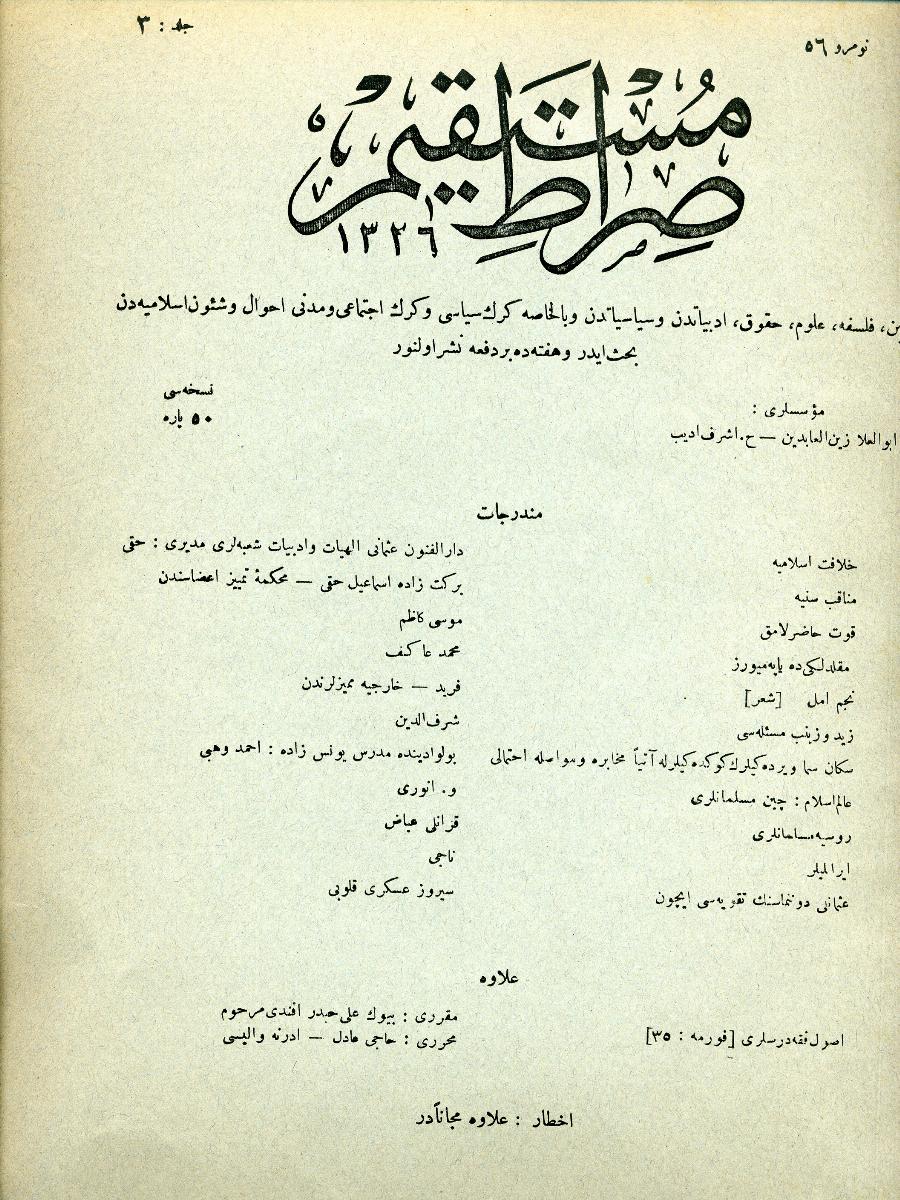 نومرو ٥٦
جلد : ٣
صِراطِ مُستَقیم
١٣٢٦
فلسفه، علوم، حقوق، ادبیاتدن وسیاسیاتدن وبالخاصه کرك سیاسی وکرك اجتماعی ومدنی احوال وشئون اسلامیه‌دن
بحث ایدر وهفته‌ده بر دفعه نشر اولنور
مؤسسلری :
ابوالعلا زین‌العابدین — ح. اشرف ادیب
نسخه‌سی
٥٠ پاره
مندرجات
خلافت اسلامیه دارالفنون عثمانی الهیات وادبیات شعبه‌لری مدیری : حقی
مناقب سنیه برکت زاده اسماعیل حقی — محکمهٔ تمییز اعضاسندن
قوت حاضرلامق موسی کاظم
مقلدلکی‌ده یاپه‌میورز محمد عاکف
نجم امل [شعر] فرید — خارجیه ممیزلرندن
زید وزینب مسئله‌سی شرف‌الدین
سکان سما ویرده‌کیلرك کوکده‌کیلرله آتیاً مخابره ومواصله احتمالی بولوادینده مدرس یونس زاده : احمد وهبی
عالم اسلام : چین مسلمانلری و. انوری
روسیه مسلمانلری قزانلی عیاض
ایرانلیلر ناجی
عثمانلی دوننماسنك تقویه‌سی ایچون سیروز عسکری قلوبی
علاوه
اصول فقه درسلری [فورمه : ٣٥] مقرری : بیوك علی حیدر افندی مرحوم
محرری : حاجی عادل — ادرنه والیسی
اخطار : علاوه مجاناًدر